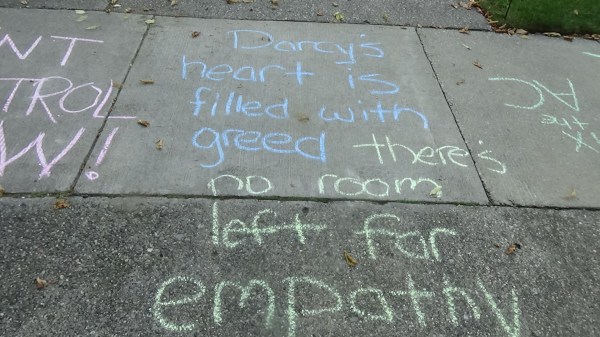 Darcy's
heart is
filled with
greed there's
no room
left for
empathy
NT
TROL
W!
AC
the